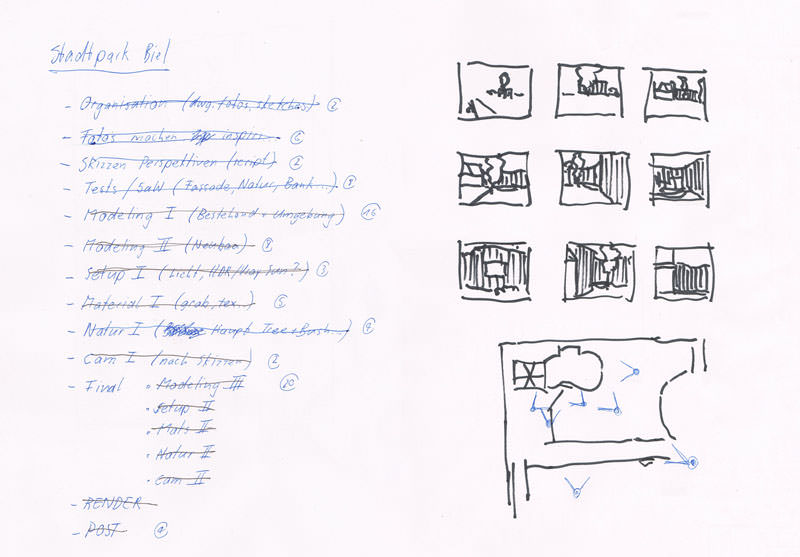 Stadtpark Biel
- Organisation (dwg. fotos, sketches) 2
- Fotos machen inspir... 6
- Skizzen Perspektiven (script) 2
- Tests / SaW (Fassade, Natur, Bank...) 9
- Modeling I (Bestehend + Umgebung) 16
- Modeling II (Neubau) 9
- Setup I (Licht, HDR/Vray Sun?) 3
- Material I (grob, tex..) 5
- Natur I (Haupt Tree + Bush...) 8
- Cam I (nach Skizzen) 2
- Final • Modeling III 20
• Setup II
• Mats II
• Natur II
• Cam II
- RENDER
- POST